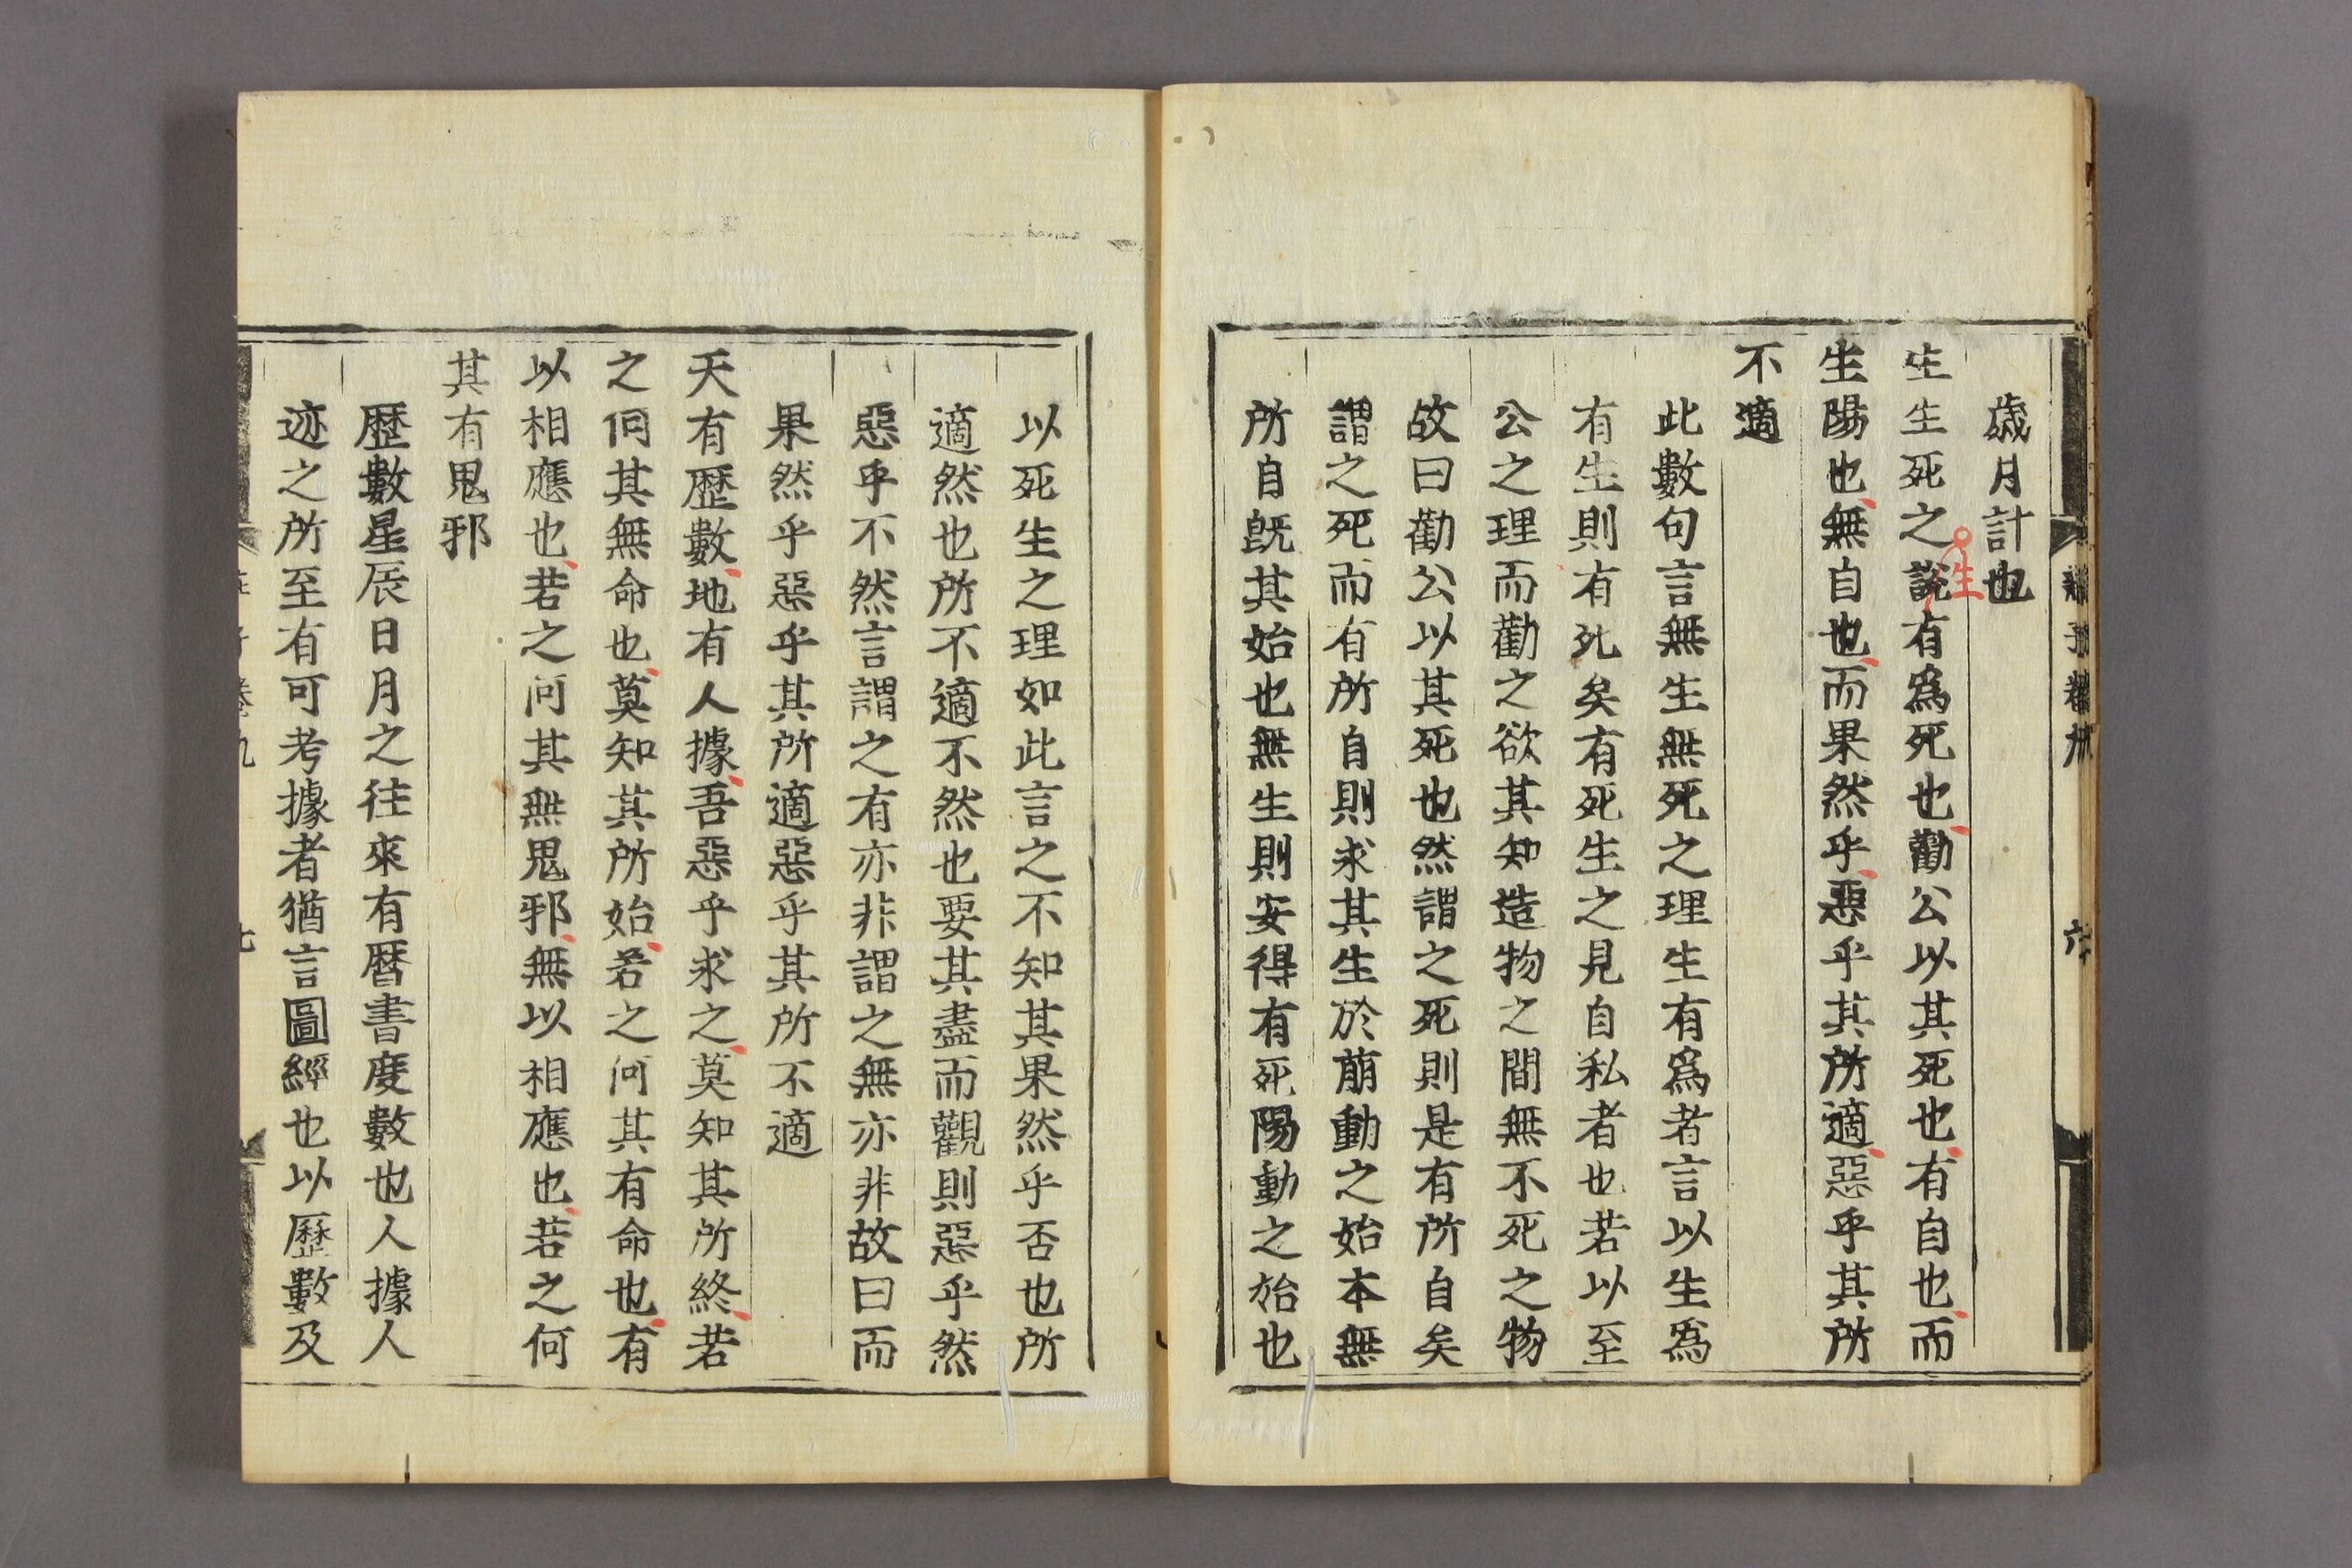 歲月計也
生生死之說有爲死也勸公以其死也有自也而
生
生陽也無自也而果然乎惡乎其所適惡乎其所
不適
此數句言無生無死之理生有爲者言以生爲
有生則有死矣有死生之見自私者也若以至
公之理而勸之欲其知造物之間無不死之物
故曰勸公以其死也然謂之死則是有所自矣
謂之死而有所自則求其生於萠動之始本無
所自旣其始也無生則安得有死陽動之始也
以死生之理如此言之不知其果然乎否也所
適然也所不適不然也要其盡而觀則惡乎然
惡乎不然言謂之有亦非謂之無亦非故曰而
果然乎惡乎其所適惡乎其所不適
天有歷數地有人據吾惡乎求之莫知其所終若
之何其無命也莫知其所始若之何其有命也有
以相應也若之何其無鬼邪無以相應也若之何
其有鬼邪
歷數星辰日月之徃來有曆書度數也人據人
迹之所至有可考據者猶言圖經也以歷數及